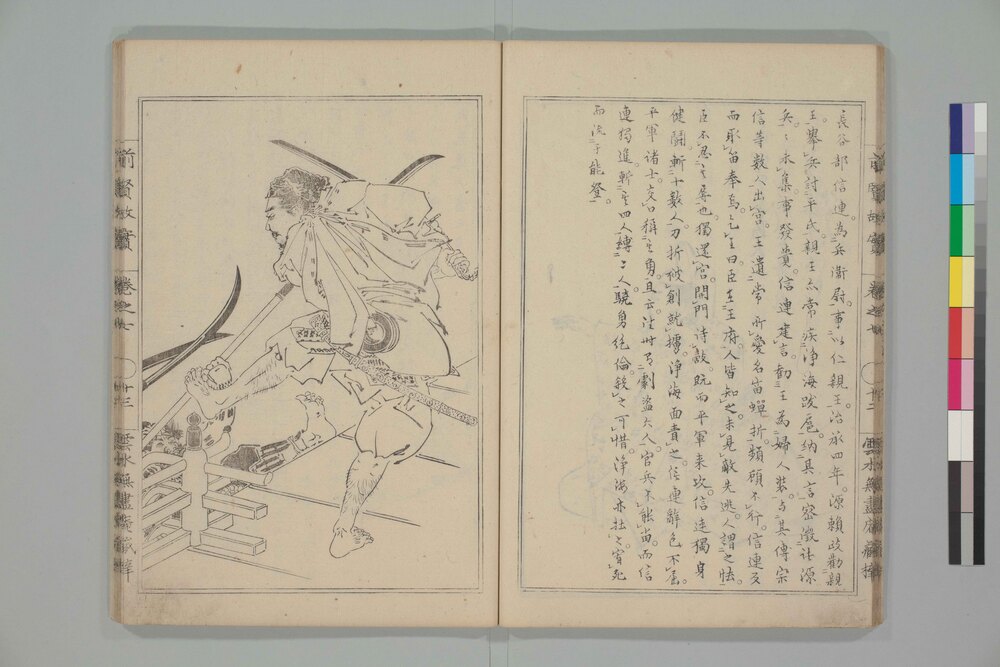 長谷部信連。為兵衞尉。事以仁親王。治承四年。源頼政勸親
王。擧兵討平氏。親王亦常疾浄海跋扈。納其言。密徴諸源
兵。兵未集。事發覺。信連建言。勸王為婦人裝。与其傅宗
信等數人出宮。王遺常所愛名笛蝉折。類顧不行。信連反
而取笛奉焉。乞王曰。臣在王府。人皆知之。未見敵先逃。人謂之怯。
臣不忍之辱也。獨還宮。開門待敵。既而平軍来攻。信連獨身
健鬪。斬十數人。刀折被創就擒。浄海面責之。信連辭色不屈。
平軍諸士。交口稱其勇。且云。往時有劇盗六人。官兵不能当。而信
連獨進。斬其四人。縛二人。驍勇絶倫。殺之可惜。浄海亦壮之。宥死
而流于能登。
前賢故實
卷之七
前賢故實
卷之七